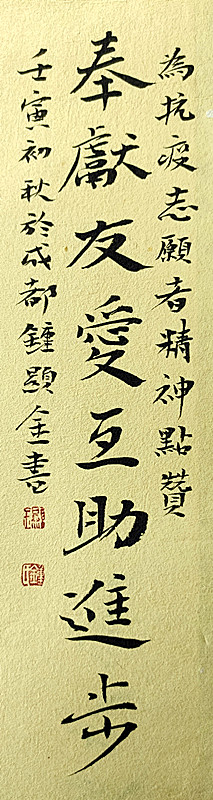 為抗疫志願者精神點贊
奉獻友愛互助進步
壬寅初秋於成都鍾顯金書